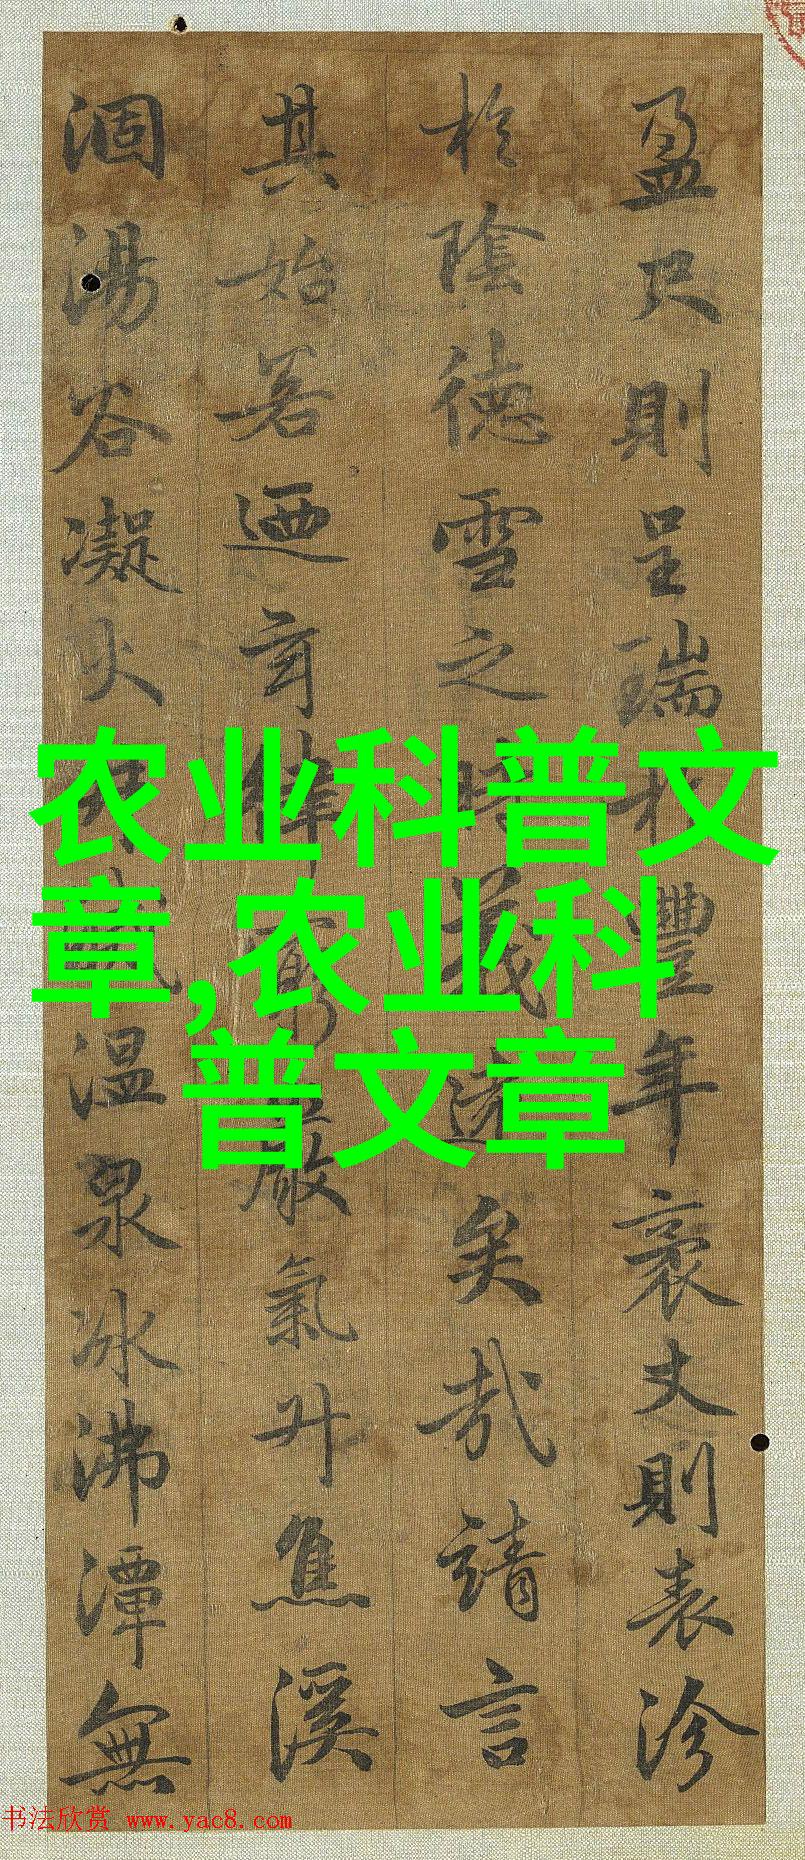 盈尺則呈瑞於豐年袤丈則表沴
於陰德雪之時義遠矣哉請言
其始若迺玄律窮嚴氣升焦溪
涸湯谷凝火井滅溫泉冰沸潭無
农业科普文
章,农业科
普文章
书法欣赏 www.yac8.com